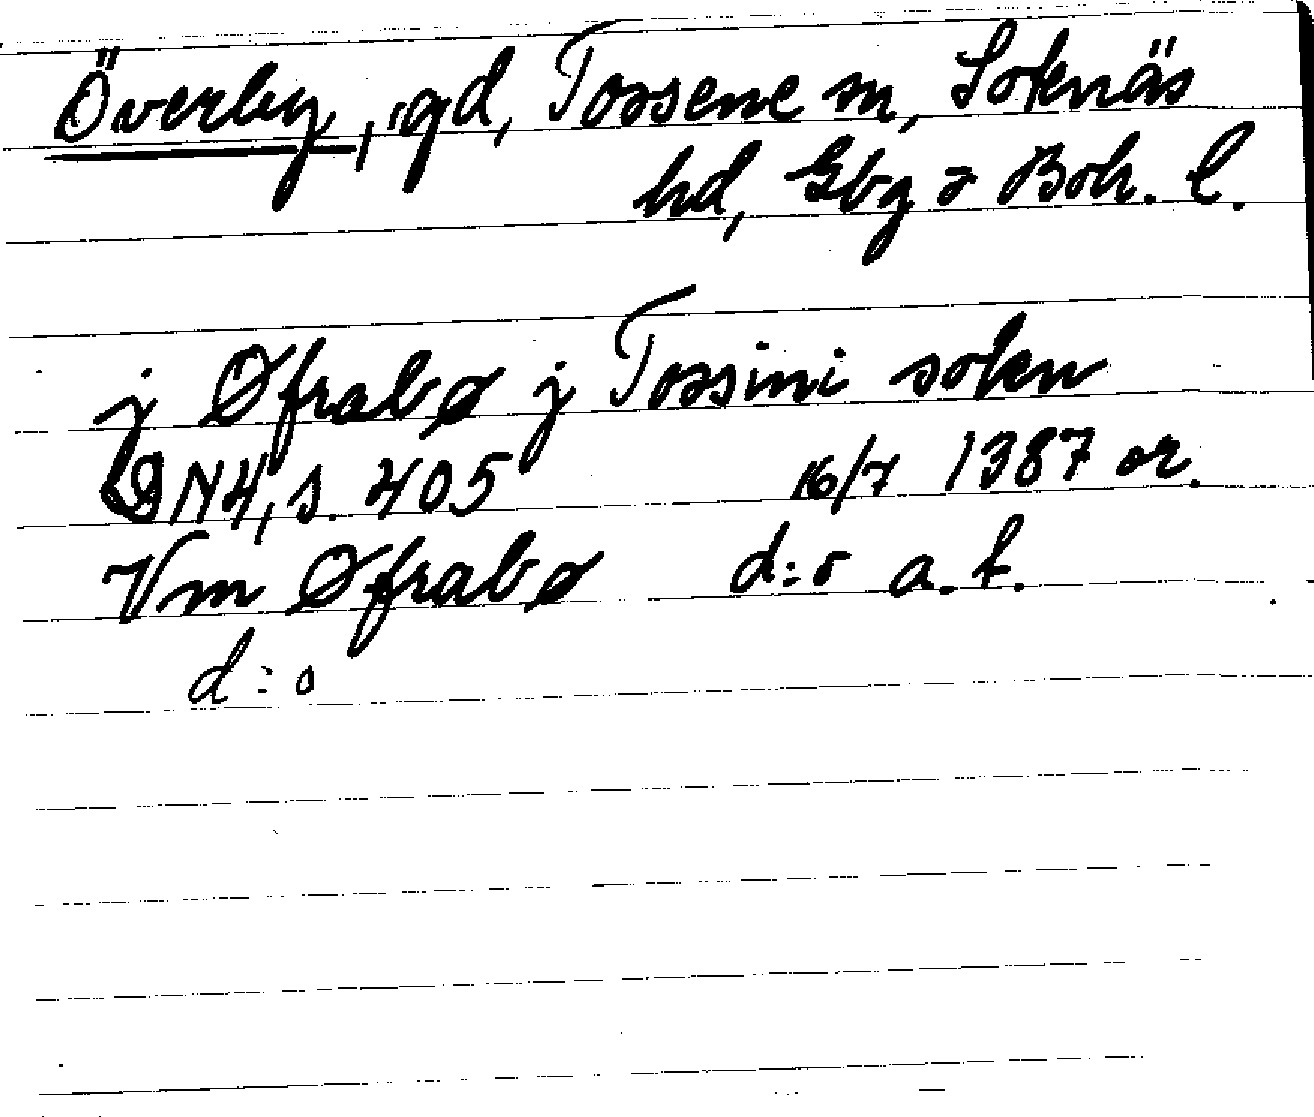 Överby, gd, Tossene sn, Sotenäs
hd, Gbg o Boh. l.
j Øfrabø j Tossini soken
DN4, s. 405 16/7 1387 or.
Vm Øfrabø d:o a.t.
d:o